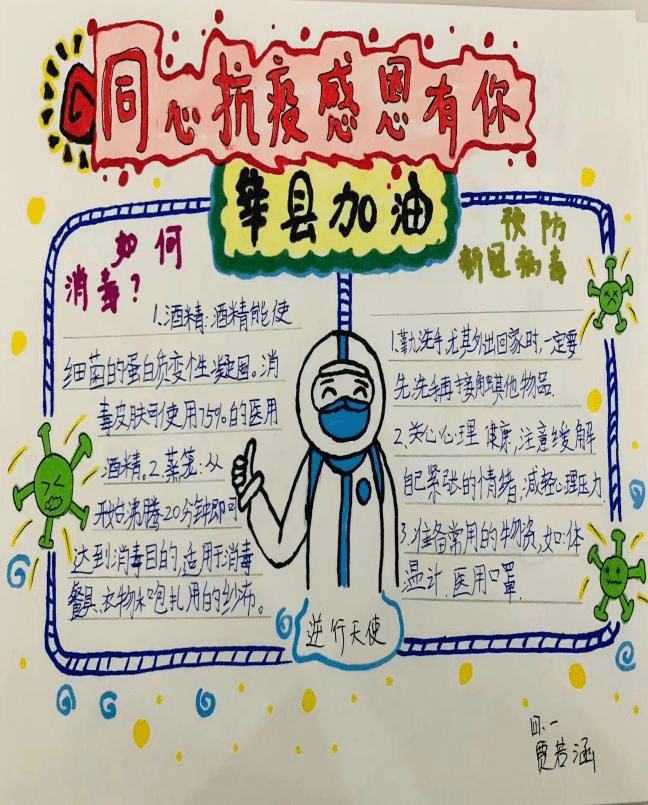 同心抗疫感恩有你
莘县加油
如何
消毒?
1.酒精:酒精能使
细菌的蛋白质变性凝固。消
毒皮肤可使用75%的医用
酒精。2.蒸笼:从
开始沸腾20分钟即可
达到消毒目的,适用于消毒
餐具、衣物和包扎用的纱布。
预防
新冠病毒
1.勤洗手,尤其外出回家时,一定要
先洗手再接触其他物品.
2.关心心理健康,注意缓解
自己紧张的情绪,减轻心理压力
3.准备常用的物资,如:体
温计.医用口罩.
逆行天使
四、一
贾若涵